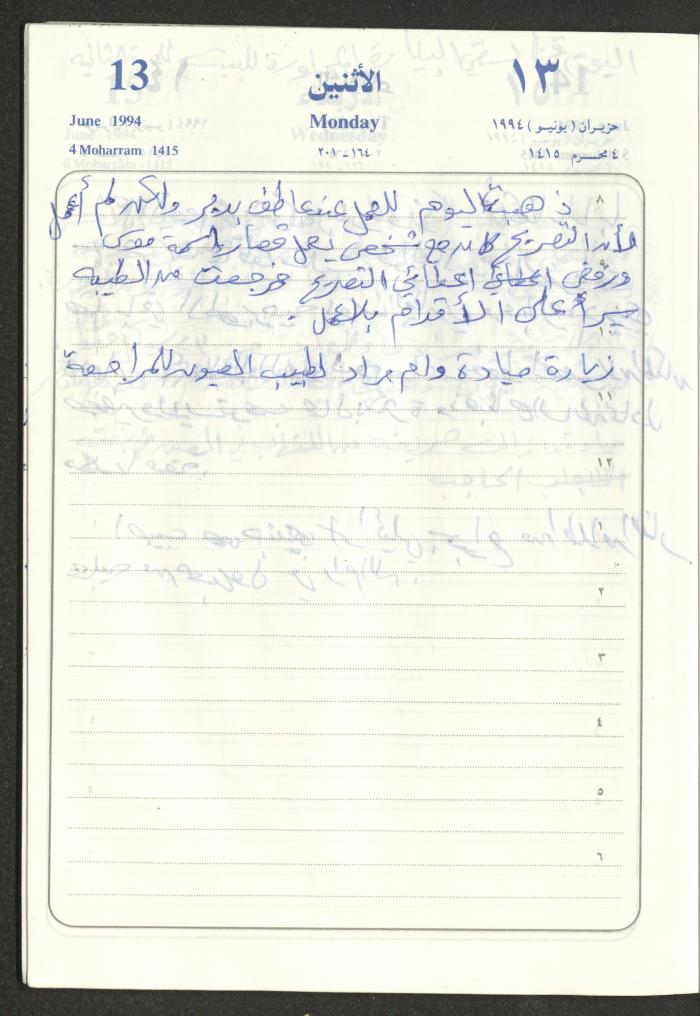 13 الأثنين ١٣
June 1994 Monday حزيران (يونيو) ١٩٩٤
4 Moharram 1415 ١٦٤-٢٠١ ٤ محرم ١٤١٥
٨
ذهبت اليوم للعمل عند عاطف بدير ولكن لم أعمل
لأن التصريح كان مع شخص يعمل قصار اسمة موسى
٩
ورفض اعطائي التصريح فرجعت من الطيبه
سيراً على الأقدام بالعمل.
١٠
زيارة ميادة وام مراد لطبيب العيون للمراجعة
١١
١٢
١
٢
٣
٤
٥
٦